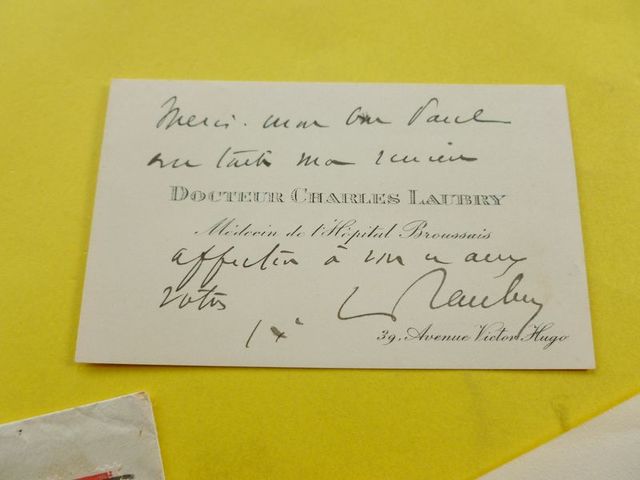 Merci. mon bon Paul
en toute ma
DOCTEUR CHARLES LAUBRY
Médecin de l'Hôpital Broussais
affection à vous et aux
votres
Laubry
39, Avenue Victor Hugo